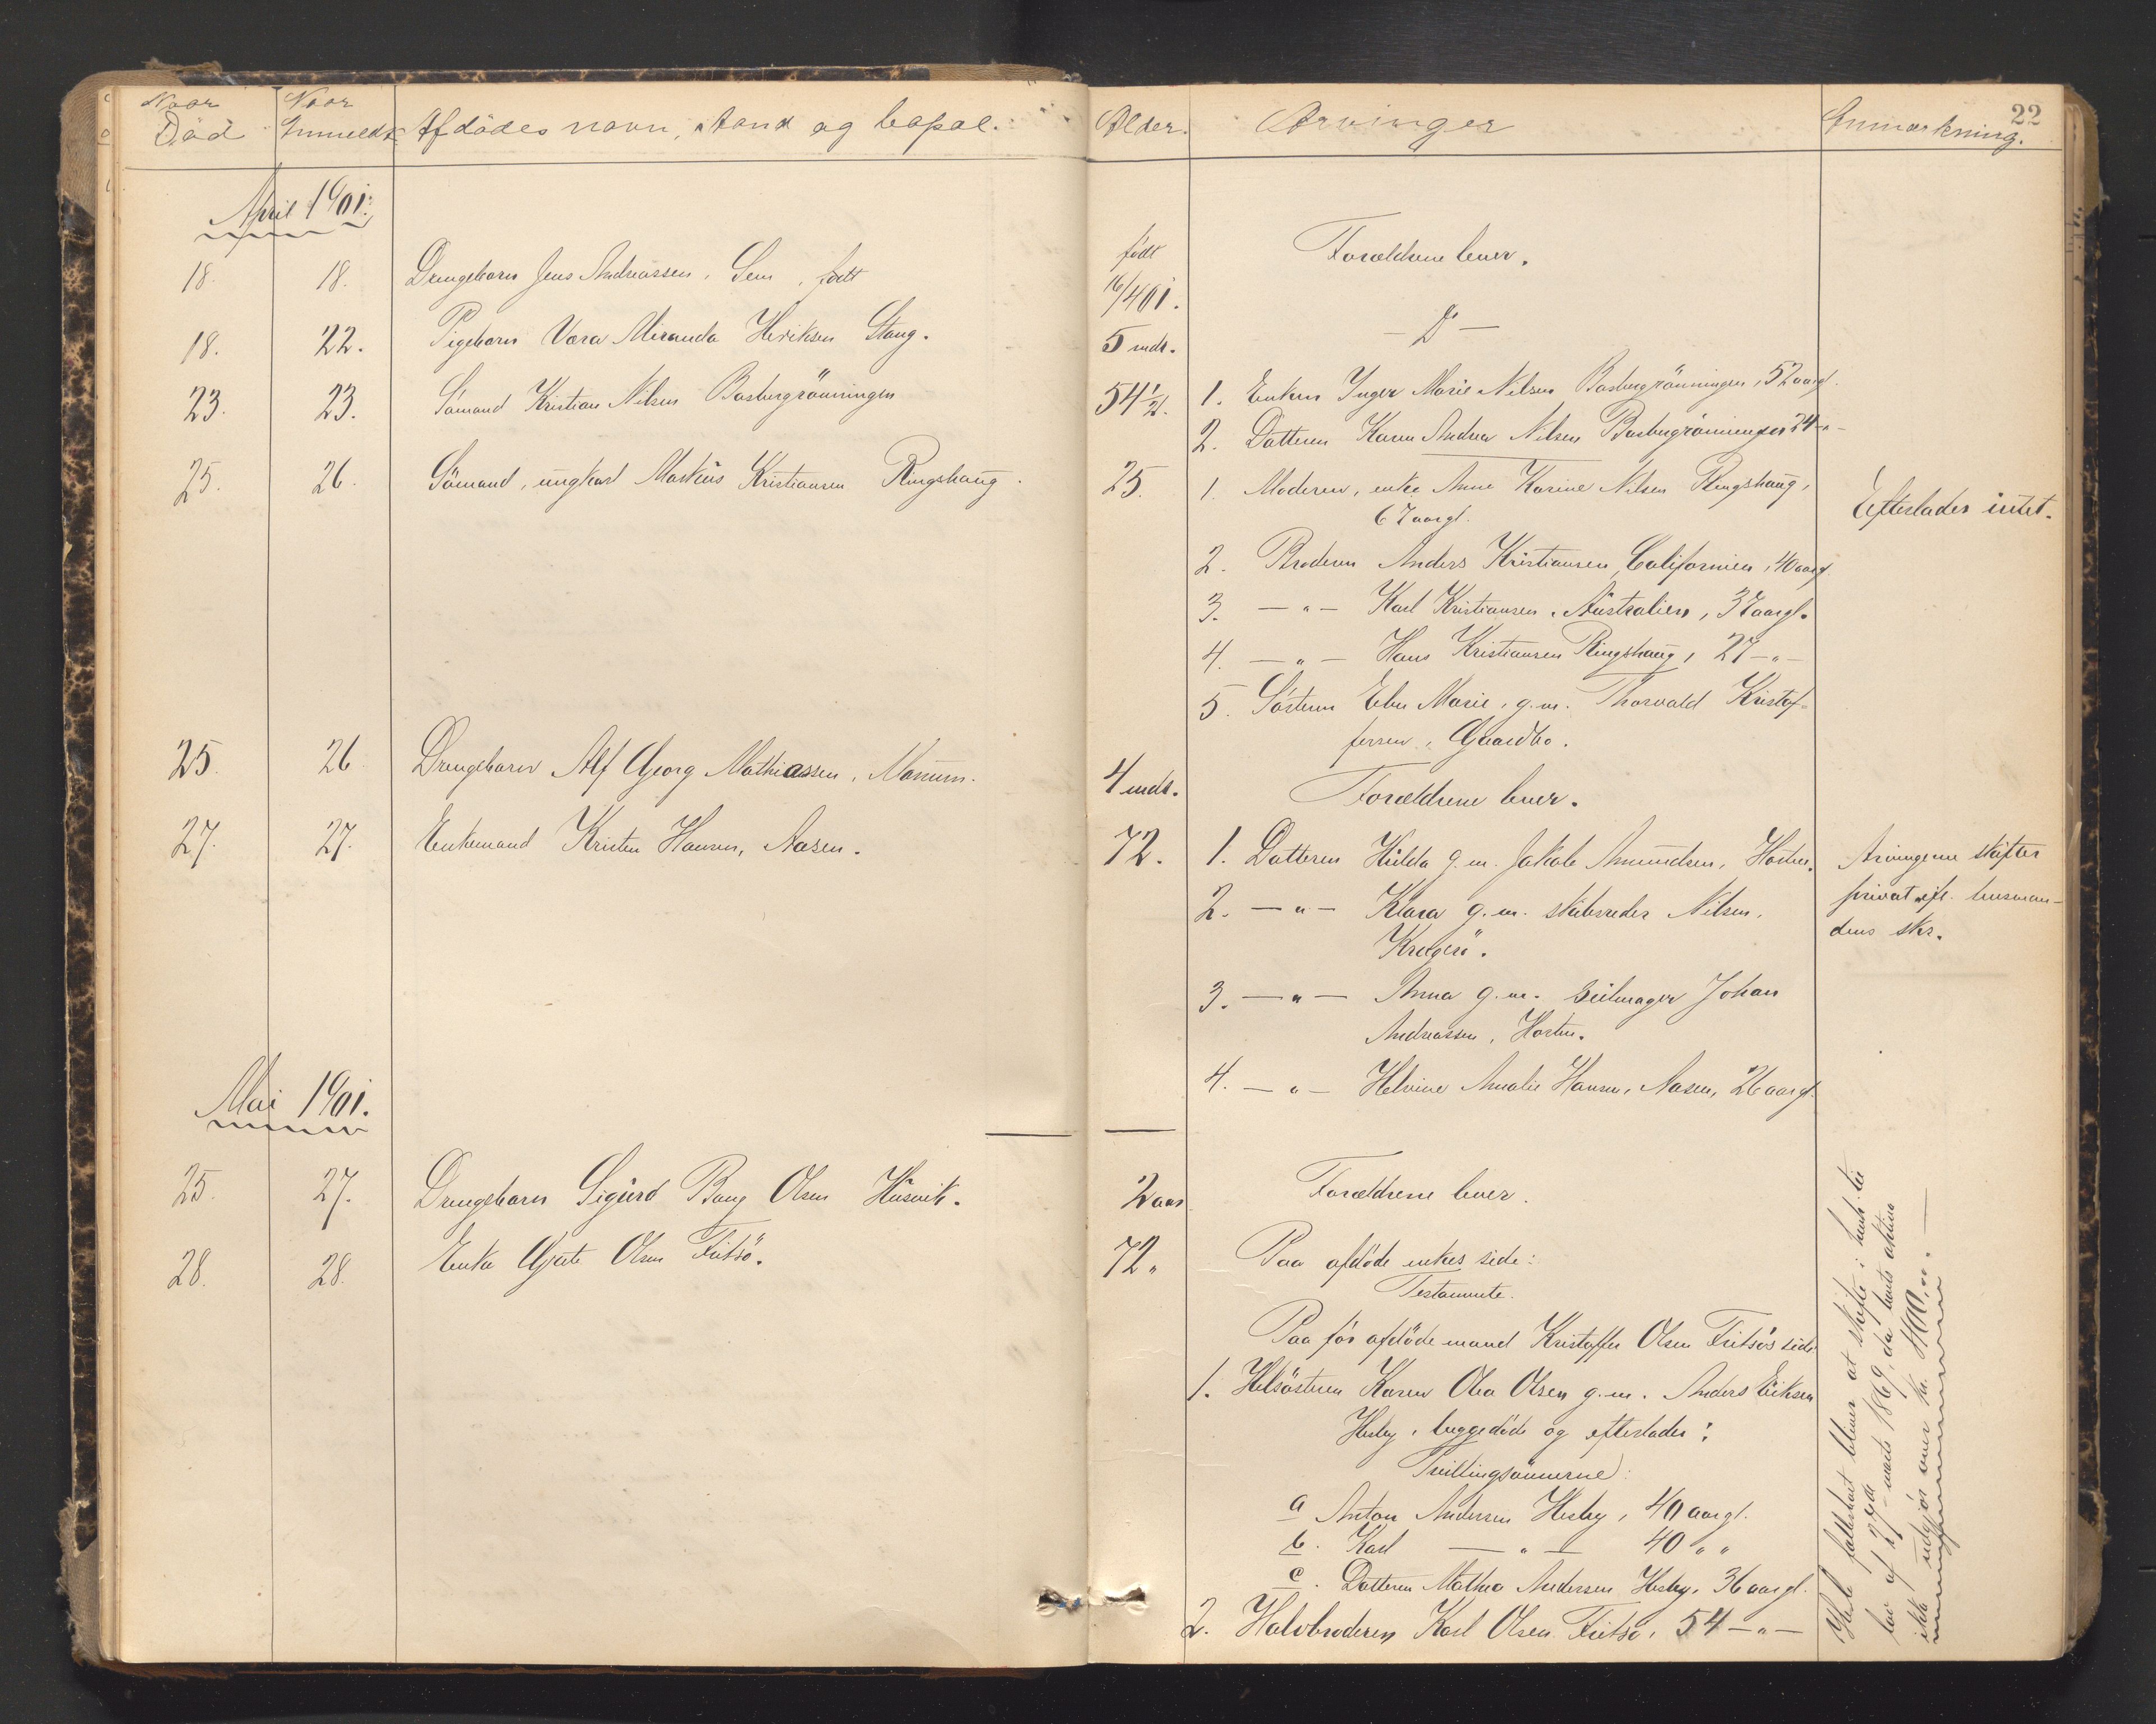 Naar Død
Naar Anmeldt
Afdødes navn, stand og bopæl.
Alder.
Arvinger
Anmærkning.
22
April 1901.
18. 18. Drengebarn Jens Andreassen, Sem, født
født 16/4 01. Forældrene lever.
18. 22. Pigebarn Vera Miranda Henriksen Stang.
5 mdr. — Do —
23. 23. Sømand Kristian Nilsen Basbergrønningen
54 1/2. 1. Enken Inger Marie Nilsen Basbergrønningen, 52 aargl.
2. Datteren Karen Andrea Nilsen Basbergrønningen 24 —"—
25. 26. Sømand, ungkarl Markus Kristiansen Ringshaug.
25. 1. Moderen, enke Anne Karine Nilsen Ringshaug,
67 aargl.
Efterlader intet.
2. Broderen Anders Kristiansen, Californien, 40 aargl.
3. —"— Karl Kristiansen, Australien, 37 aargl.
4. —"— Hans Kristiansen Ringshaug, 27 —"—
5. Søsteren Ebu Marie, g.m. Thorvald Kristof-
fersen, Gaardbo.
25. 26 Drengebarn Alf Georg Mathiassen, Manum.
4 mdr. Forældrene lever.
27. 27. Enkemand Kristen Hansen, Aasen.
72. 1. Datteren Hilda g.m. Jakob Amundsen, Horten.
2. —"— Klara g.m. skibsreder Nilsen,
Kragerø.
3. —"— Anna g.m. seilmager Johan
Andreassen, Horten.
4. —"— Helvine Amalie Hansen, Aasen, 26 aargl.
Arvingerne skifter
privat efl. husman-
dens skr.
Mai 1901.
25. 27. Drengebarn Sigurd Bang Olsen Husvik.
2 aar Forældrene lever.
28. 28. Enke Gjate Olsen Fritsø.
72. Paa afdøde enkes side:
Testamente.
Paa før afdøde mand Kristoffer Olsen Fritsøs side
1. Helsøsteren Karen Olea Olsen g.m. Anders Eriksen
Hesby, begge døde og efterlader:
Tvillingsønnerne:
a Anton Andersen Hesby, 40 aargl.
b. Karl —"— 40 " "
c. Datteren Mathea Andersen Hesby, 36 aargl.
2. Halvbroderen Karl Olsen Fritsø, 54 —"—
fællesboet bliver at skifte i henh. til
lov af 27de marts 1869, da boets aktiva
ikke udgjør over kr. 400,00. —